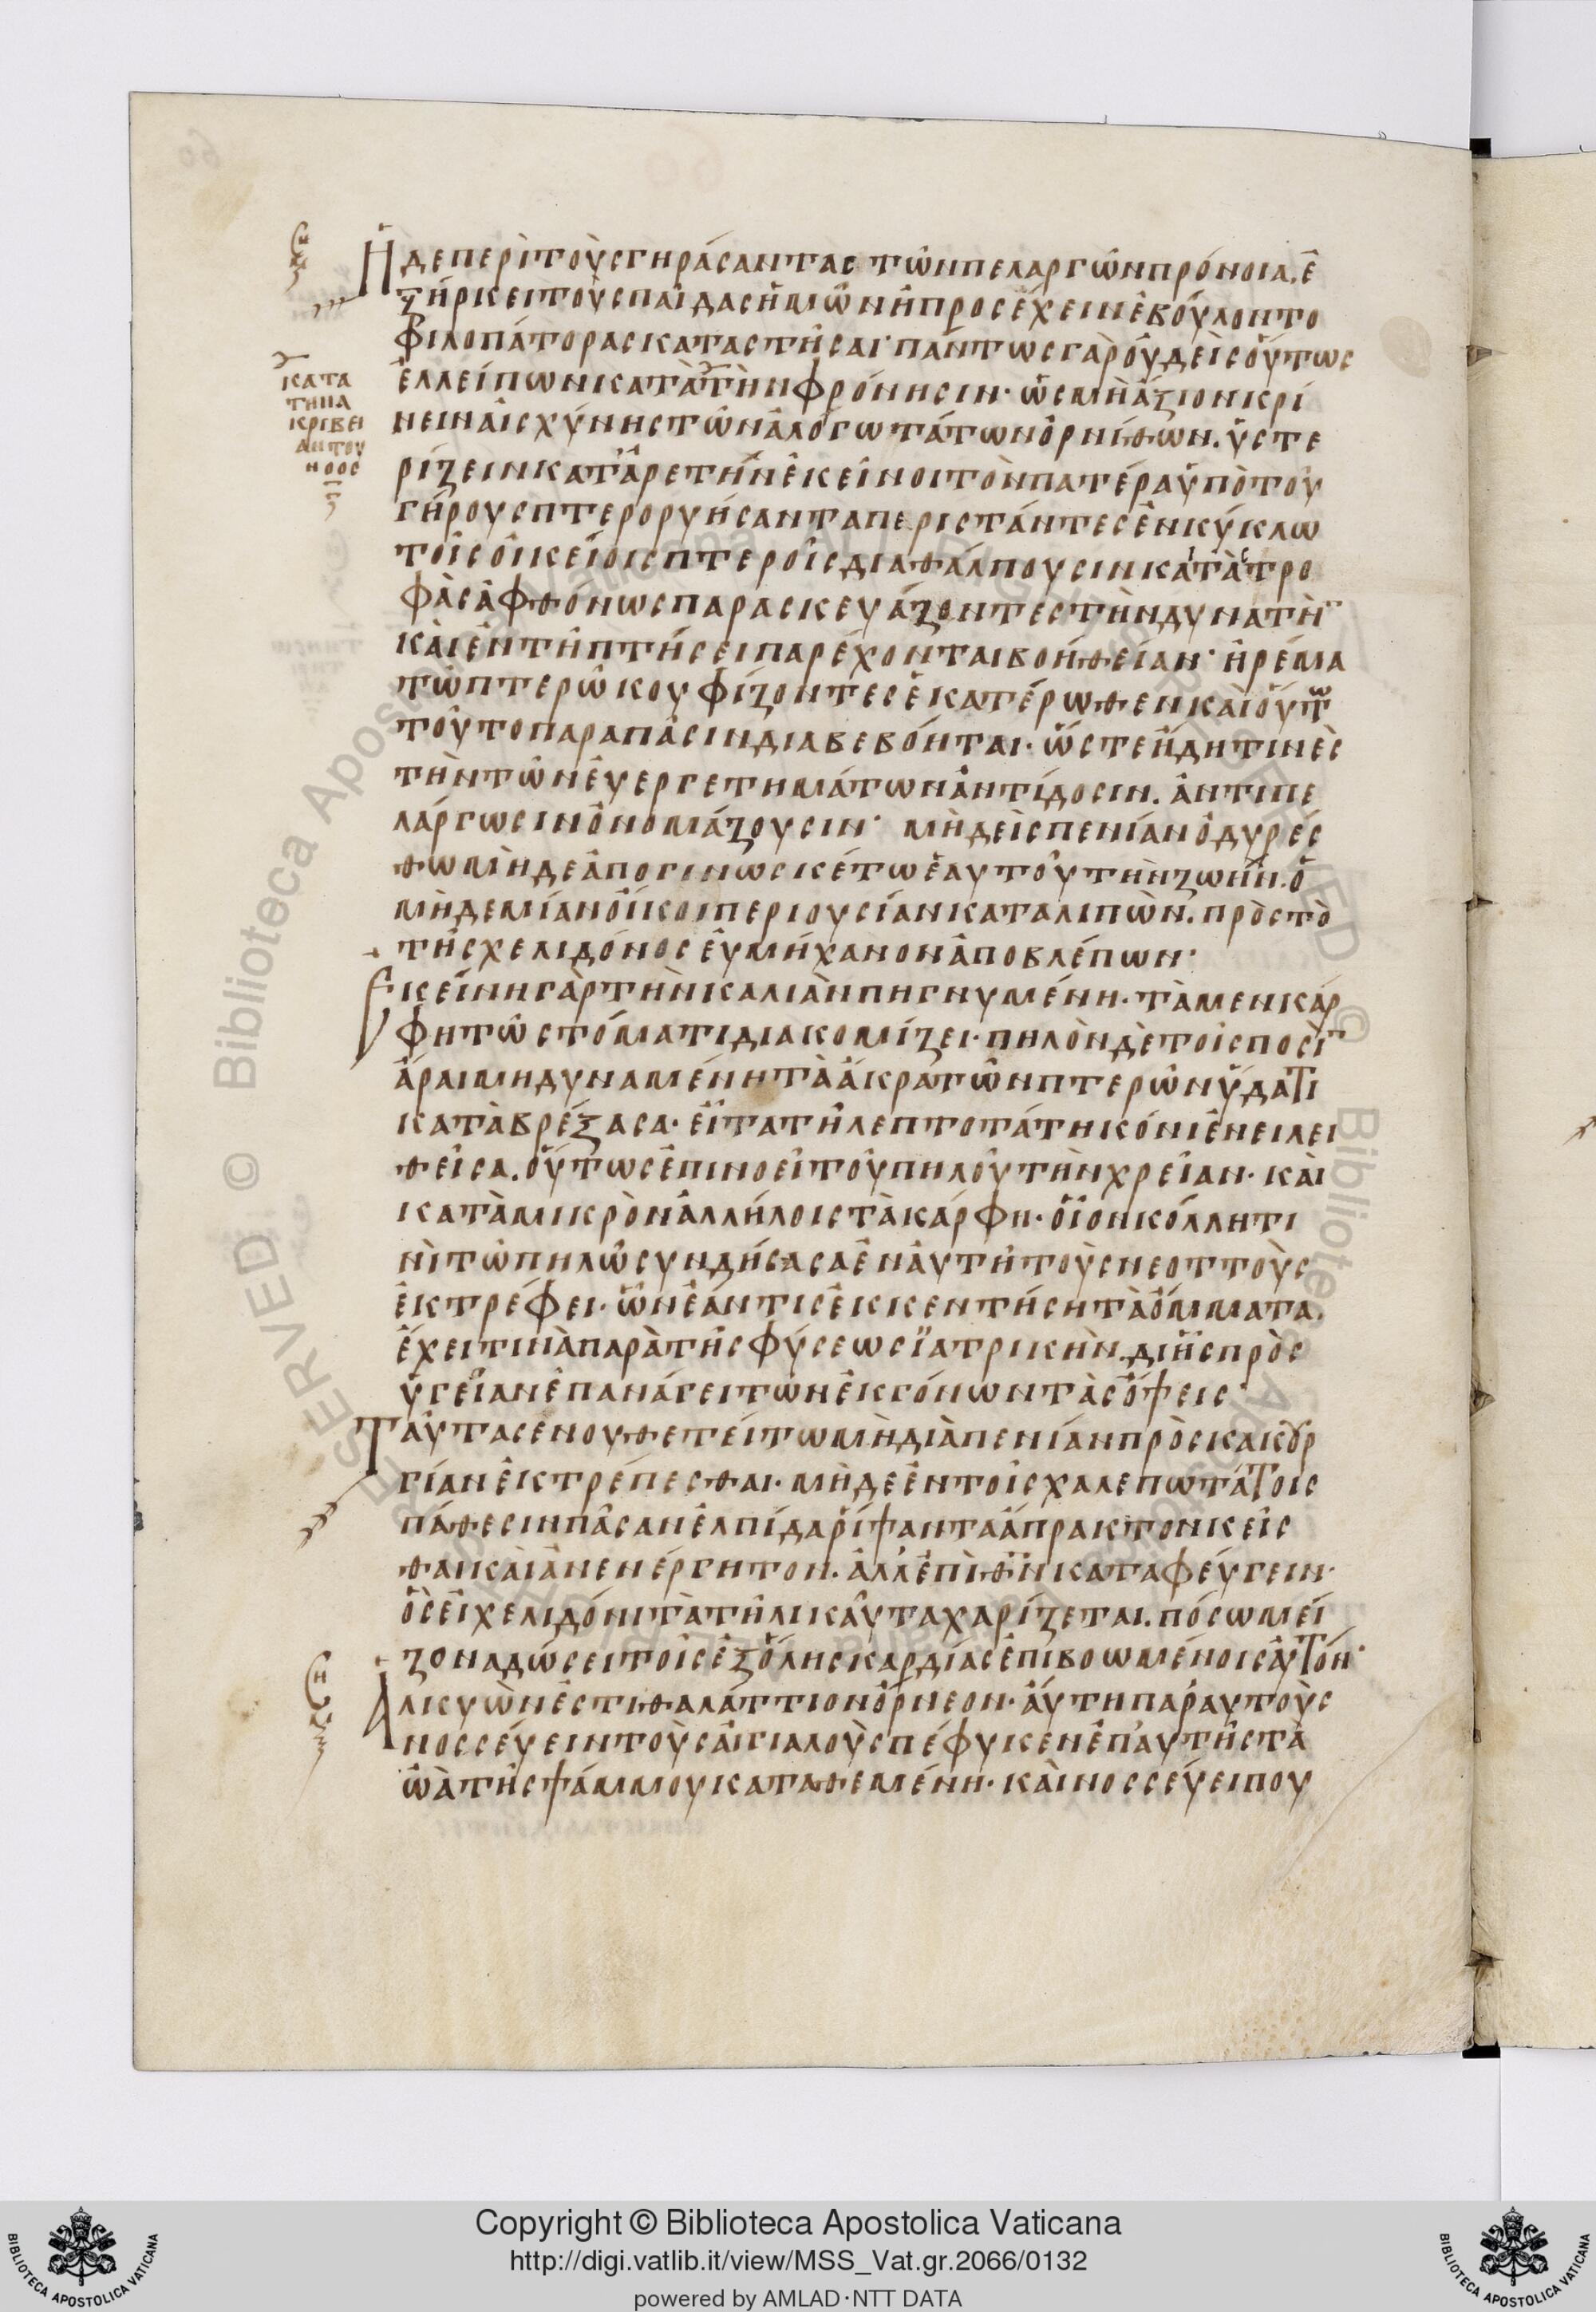 Ἡ δὲ περὶ τοὺς γηράσαντας τῶν πελαργῶν πρόνοια. ἐ
ξήρκει τοὺς παῖδας ἡμῶν ἢ προσέχειν ἐβούλοντο
φιλοπάτορας καταστῆσαι· πάντως γὰρ οὐδεὶς οὕτως
ἐλλείπων κατὰ τὴν φρόνησιν· ὡς μὴ ἄξιον κρί
νειν αἰσχύνης τῶν ἀλογωτάτων ὀρνίθων. ὑστε
ρίζειν κατ' ἀρετὴν ἐκεῖνοι τὸν πατέρα ὑπὸ τοῦ
γήρους πτερορυήσαντα περιστάντες ἐν κύκλω
τοῖς οἰκείοις πτεροῖς διαθάλπουσιν κατὰ τρο
φὰς ἀφθόνως παρασκευάζοντες τὴν δυνατὴν
καὶ ἐν τῆ πτήσει παρέχονται βοήθείαν· ἠρέμα
τῶ πτερῶ κουφίζοντες ἑκατέρωθεν καὶ οὕτω
τοῦτο παρὰ πᾶσιν διαβεβόηται· ὥστε ἤδη τινὲς
τὴν τῶν εὐεργετημάτων ἀντίδοσιν. ἀντιπε
λάργωσιν ὀνομάζουσιν· μηδεὶς πενίαν ὀδυρέσ
θω μὴδε ἀπογινωσκέτω ἑαυτοῦ τὴν ζωήν. ὁ
μὴδεμίαν οἴκοι περιουσίαν καταλιπὼν. πρὸς τὸ
τῆς χελιδόνος εὐμήχανον ἀποβλέπων·
Ἐκείνη γὰρ τὴν καλιὰν πηγνυμένη· τὰ μὲν κάρ
φη τῶ στόματι διακομίζει· πηλὸν δὲ τοῖς ποσὶν
ἆραι μὴ δυναμένη τὰ ἄκρα τῶν πτερῶν ὕδατι
καταβρέξασα· εἶτα τῆ λεπτοτάτη κόνι ἐνειλει
θεῖσα. οὕτως ἐπινοεῖ τοῦ πηλοῦ τὴν χρεῖαν· καὶ
κατὰ μικρὸν ἀλλήλοις τὰ κάρφη· οἷον κόλλη τι
νὶ τῶ πηλῶ συνδήσασα ἐν αὐτῆ τοὺς νεοττοὺς
ἐκτρέφει· ὧν ἐάν τις ἐκκεντήση τὰ ὄμματα.
ἔχει τινὰ παρὰ τῆς φύσεως ϊατρικὴν. δι ἧς πρὸς
ὑγείαν ἐπανάγει τῶν ἐκγόνων τὰς ὄψεις·
Ταῦτα σε νουθετείτω μὴ διὰ πενίαν πρὸς κακουρ
γίαν ἐκτρέπεσθαι· μὴδε ἐν τοῖς χαλεπωτάτοις
πάθεσιν πᾶσαν ἐλπίδα ῥίψαντα ἄπρακτον κεῖσ
θαι καὶ ἀνενέργητον. ἀλλ' ἐπὶ θν καταφεύγειν·
ὃς εἰ χελιδόνι τὰ τηλικαῦτα χαρίζεται. πόσω μεί
ζονα δώσει τοῖς ἐξ ὅλης καρδίας ἐπιβοωμένοις αὐτόν·
Ἀλκυὼν ἐστι θαλάττιον ὄρνεον· αὕτη παρ αυτοὺς
νοσσεύειν τοὺς αἰγιαλοὺς πέφυκεν ἐπ' αὐτῆς τὰ
ὠὰ τῆς ψάμμου καταθεμένη· καὶ νοσσεύει που
κατα
την α
κριβει
αν του
νοος
Copyright © Biblioteca Apostolica Vaticana
http://digi.vatlib.it/view/MSS_Vat.gr.2066/0132
powered by AMLAD·NTT DATA